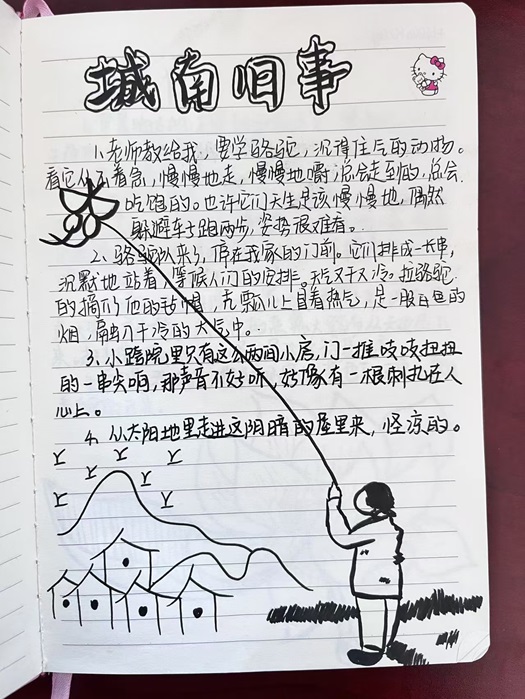 城南旧事
1.老师教给我，要学骆驼，沉得住气的动物。
看它从不着急，慢慢地走，慢慢地嚼，总会走到的，总会
吃饱的。也许它们天生是该慢慢地，偶然
躲避车子跑两步，姿势很难看。
2、骆驼队来了，停在我家的门前。它们排成一长串，
沉默地站着，等候人们的安排。天气又干又冷。拉骆驼
的摘了他的毡帽，秃瓢儿上冒着热气，是一股白色的
烟，融入干冷的大气中。
3、小跨院里只有这么两间小房，门一推吱吱扭扭
的一串尖响，那声音不好听，好像有一根刺扎在人
心上。
4、从太阳地里走进这阴暗的屋里来，怪凉的。